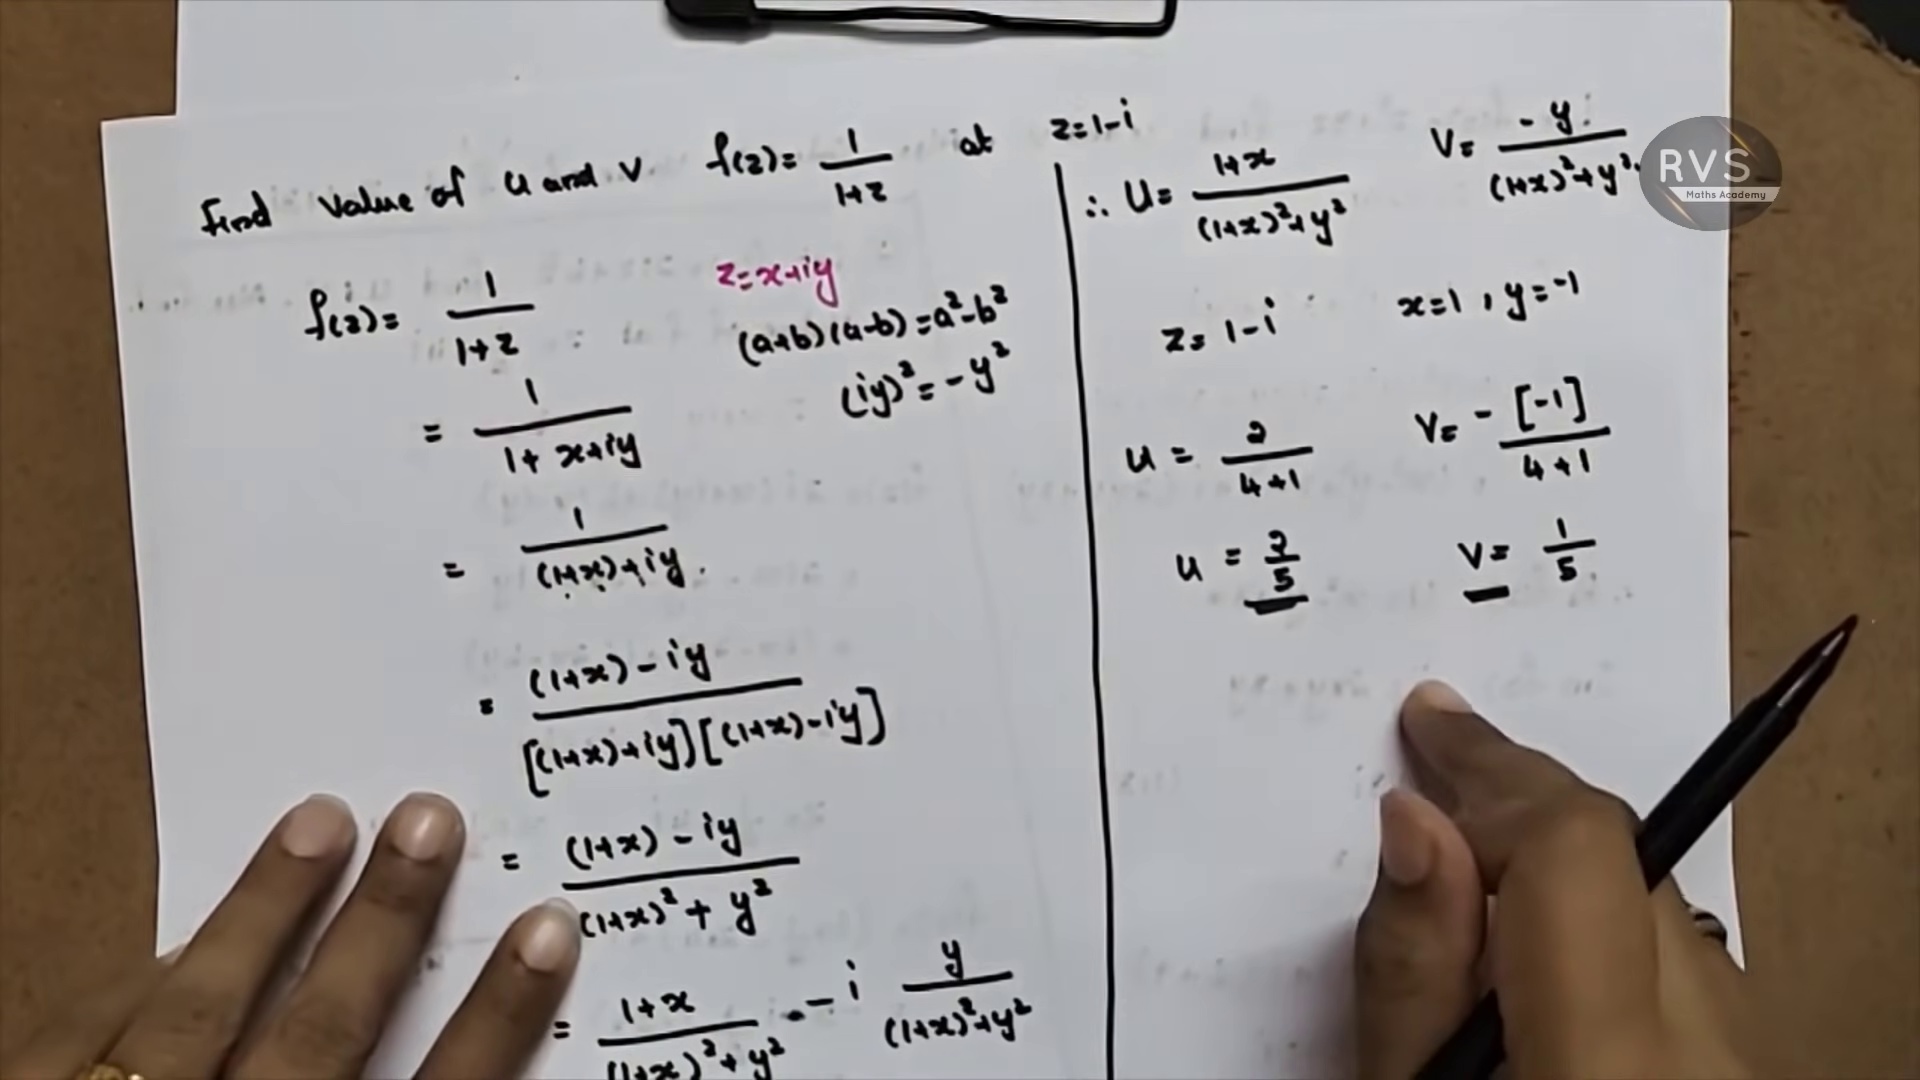 Find value of u and v f(z)= 1/(1+z) at z=1-i
f(z)= 1/(1+z)
z=x+iy
(a+b)(a-b)=a²-b²
(iy)²=-y²
= 1/(1+x+iy)
= 1/((1+x)+iy).
= ((1+x)-iy)/([(1+x)+iy][(1+x)-iy])
= ((1+x)-iy)/((1+x)²+y²)
= (1+x)/((1+x)²+y²) - i y/((1+x)²+y²)
∴ U= (1+x)/((1+x)²+y²) V= -y/((1+x)²+y²)
z= 1-i x=1, y=-1
u = 2/(4+1) V= -[-1]/(4+1)
u = 2/5 V= 1/5
RVS
Maths Academy